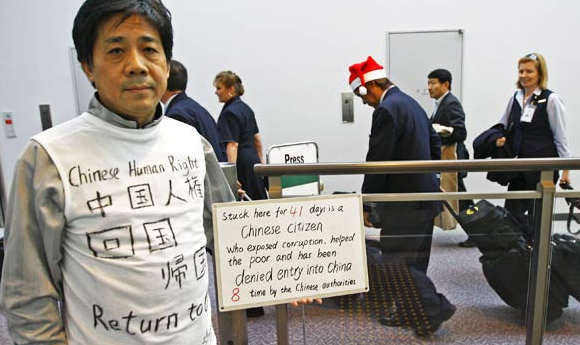 Chinese Human Right
中国人权
回国
帰国
Return to
Press
Stuck here for 41 days is a
Chinese Citizen
who exposed corruption, helped
the poor and has been
denied entry into China
8 time by the Chinese authorities